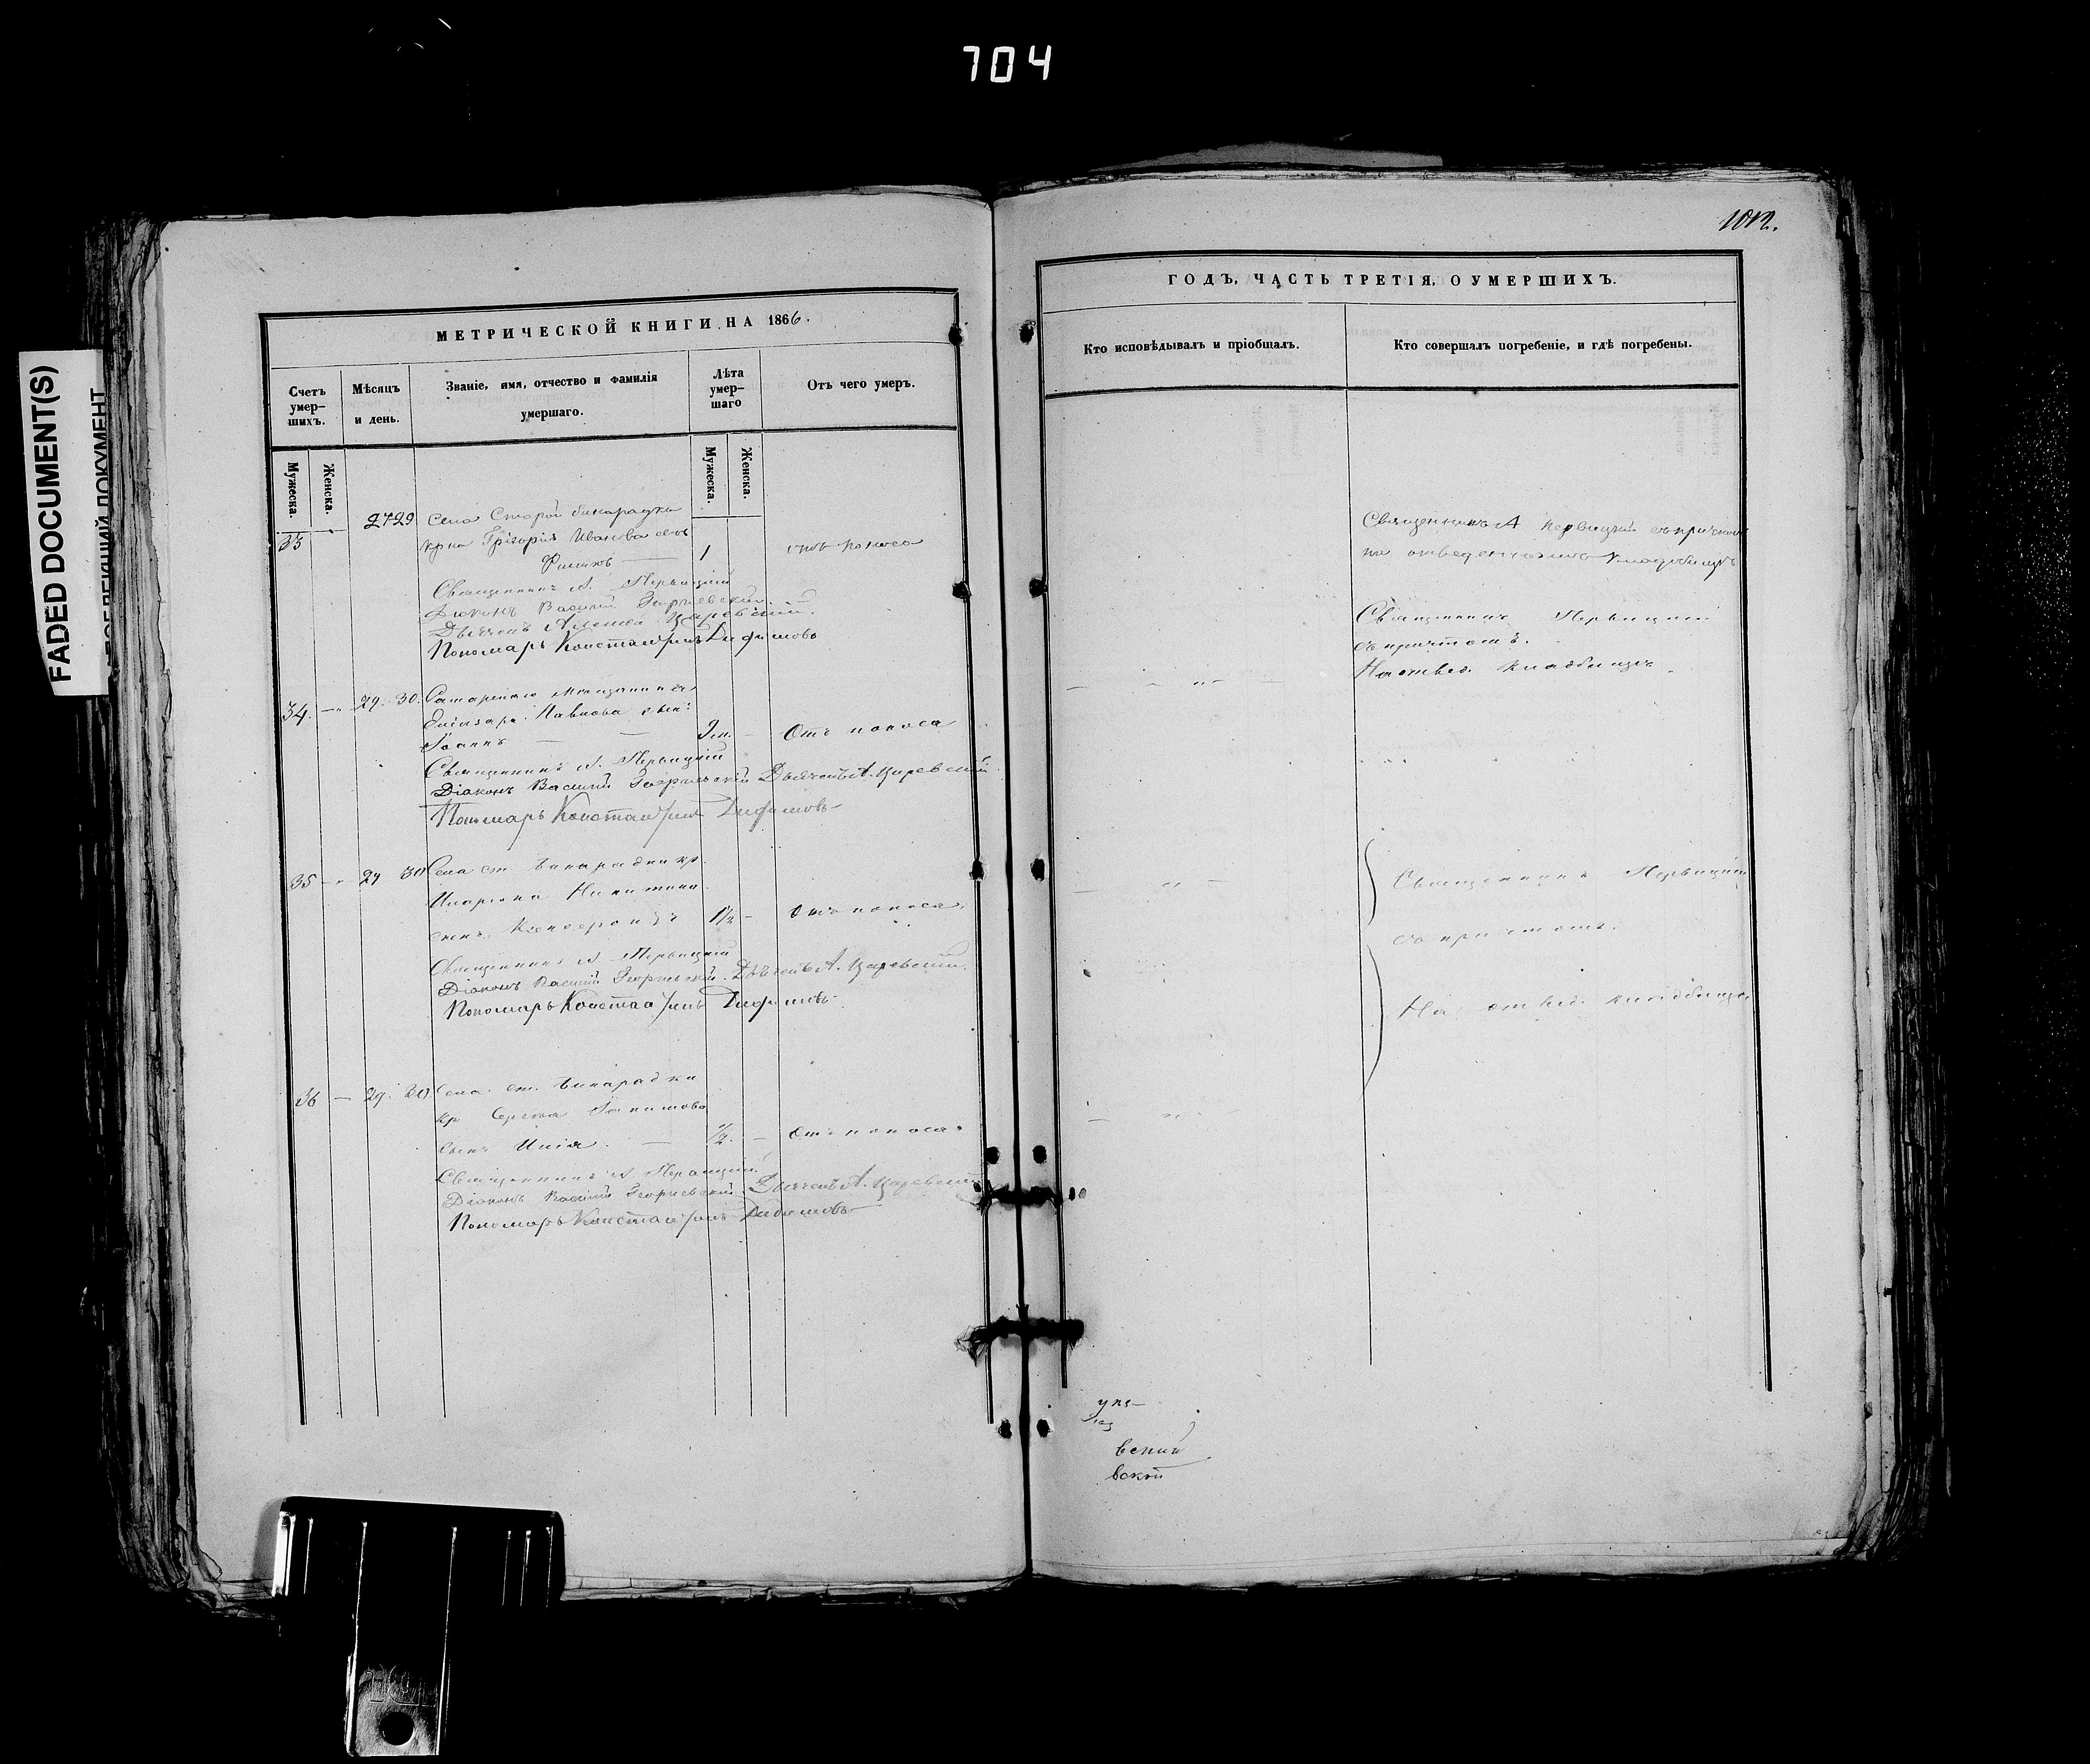 704
FADED DOCUMENT(S)
1012.
МЕТРИЧЕСКОЙ КНИГИ НА 1866.
Счетъ умер-шихъ.
Мѣсяцъ и день.
Званіе, имя, отчество и фамилія умершаго.
Лѣта умер-шаго
Отъ чего умеръ.
Мужеска.
Женска.
Мужеска.
Женска.
33
27 29
Села Старой Бинарадки
кр на Григорія Иванова сынъ
1
отъ поноса
Священникъ А. Первицкій
Діаконъ Василій Георгіевскій
Дьячекъ Алексей Царевскій.
Пономарь Константинъ Дифимовъ
34. 29. 30. Самарскаго мѣщанина
Елиазара Павлова сынъ
Іоаннъ — Отъ поноса
Священникъ А. Первицкій
Діаконъ Василій Георгіевскій Дьячекъ А. Царевскій
Пономарь Константинъ Дифимовъ
35 29 30 Села ст. Бинарадки кр.
Илариона Никитина
сынъ 1½ - Отъ поноса.
Священникъ А Первицкій
Діаконъ Василій Георгіевскій. Дьячекъ А. Царевскій.
Пономарь Константинъ Дифимовъ
36 — 29. 30. Села ст. Бинарадки
кр Сергея
сынъ Илія. — ½. — Отъ поноса.
Священникъ А Первицкій
Діаконъ Василій Георгіевскій Дьячекъ А. Царевскій
Пономарь Константинъ Дифимовъ
ГОДЪ, ЧАСТЬ ТРЕТІЯ, О УМЕРШИХЪ.
Кто исповѣдывалъ и пріобщалъ.
Кто совершалъ погребеніе, и гдѣ погребены.
Священникъ А Первицкій съ причтомъ
на отведенномъ кладбищѣ
Священникъ Первицкій
съ причтомъ.
На отвед. кладбищѣ
Священникъ Первицкій
съ причтомъ.
На отвед. кладбищѣ
вскій
вской